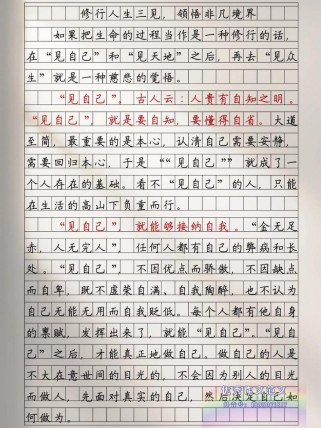 修行人生三见，领悟非凡境界
如果把生命的过程当作是一种修行的话，
在“见自己”和“见天地”之后，再去“见众
生”就是一种慈悲的觉悟。
“见自己”，古人云：人贵有自知之明。
“见自己”，就是要自知，要懂得自省。大道
至简，最重要的是本心，认清自己需要安静，
需要回归本心，于是“““见自己””就成了一
个人存在的基础。看不“见自己”的人，只能
在生活的高山下负重而行。
“见自己”，就能够接纳自我。“金无足
赤，人无完人”，任何人都有自己的弊病和长
处。“见自己”，不因优点而骄傲，不因缺点
而自卑，既不虚荣自满、自我陶醉，也不认为
自己无能无用而自我贬低。每个人都有他自身
的禀赋，发挥出来了，就能“见自己”。“见自
己”之后，才能真正地做自己。做自己的人是
不大在意世间的目光的，不会因为别人的目光
而做人，先面对真实的自己，然后决定自己如
何做为。